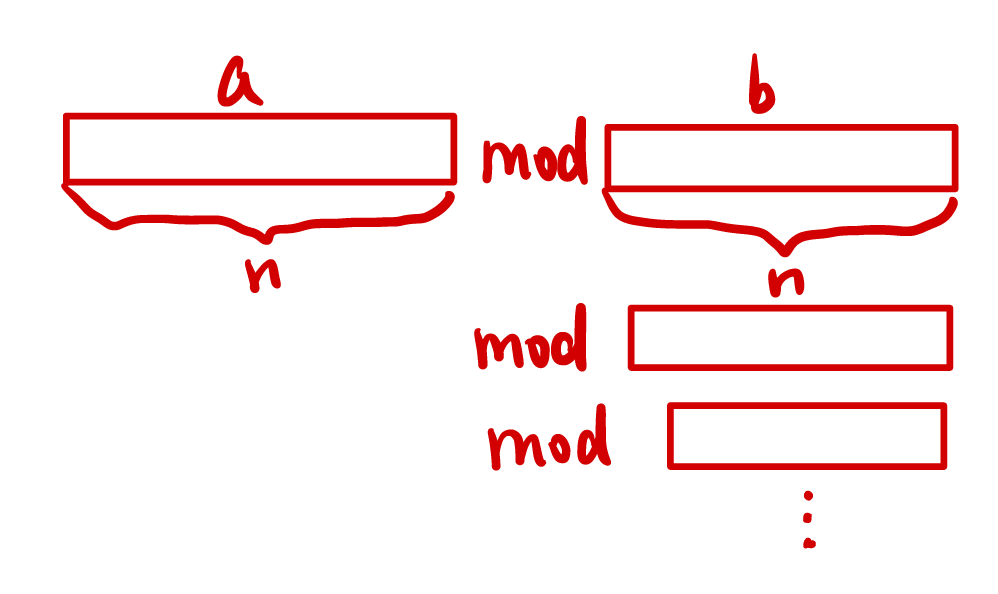 a b
mod
n n
mod
mod